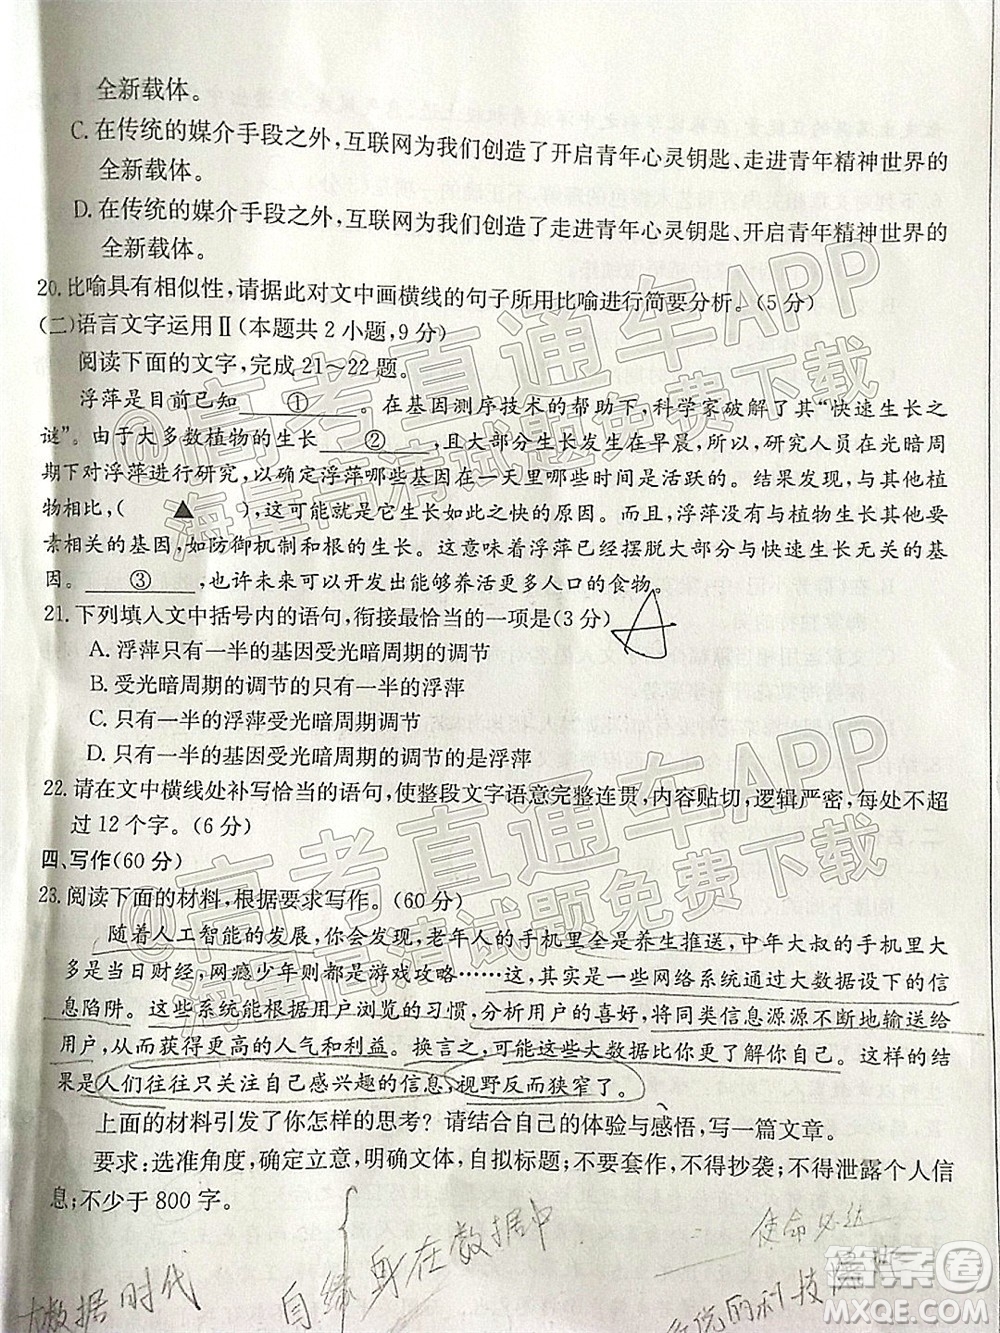 全新载体。
C.在传统的媒介手段之外,互联网为我们创造了开启青年心灵钥匙、走进青年精神世界的
全新载体。
D.在传统的媒介手段之外,互联网为我们创造了走进青年心灵钥匙、开启青年精神世界的
全新载体。
20.比喻具有相似性,请据此对文中画横线的句子所用比喻进行简要分析。(5分)
(二)语言文字运用Ⅱ(本题共2小题,9分)
阅读下面的文字,完成21~22题。
浮萍是目前已知 ① 。在基因测序技术的帮助下,科学家破解了其“快速生长之
谜”。由于大多数植物的生长 ② ,且大部分生长发生在早晨,所以,研究人员在光暗周
期下对浮萍进行研究,以确定浮萍哪些基因在一天的什么时候是活跃的。结果发现,与其他植
物相比,( ▲ ),这可能就是它生长如此之快的原因。而且,浮萍没有与植物生长其他要
素相关的基因,如防御机制和根的生长。这意味着浮萍已经摆脱大部分与快速生长无关的基
因。 ③ ,也许未来可以开发出能够养活更多人口的食物。
21.下列填入文中括号内的语句,衔接最恰当的一项是(3分)
A.浮萍只有一半的基因受光暗周期的调节
B.受光暗周期的调节的只有一半的浮萍
C.只有一半的浮萍受光暗周期调节
D.只有一半的基因受光暗周期的调节的是浮萍
22.请在文中横线处补写恰当的语句,使整段文字语意完整连贯,内容贴切,逻辑严密,每处不超
过12个字。(6分)
四、写作(60分)
23.阅读下面的材料,根据要求写作。(60分)
随着人工智能的发展,你会发现,老年人的手机里全是养生推送,中年大叔的手机里大
多是当日财经、网瘾少年则都是游戏攻略……这,其实是一些网络系统通过大数据设下的信
息陷阱。这些系统能根据用户浏览的习惯,分析用户的喜好,将同类信息源源不断地输送给
用户,从而获得更高的人气和利益。换言之,可能这些大数据比你更了解你自己。这样的结
果是人们往往只关注自己感兴趣的信息,视野反而狭窄了。
上面的材料引发了你怎样的思考?请结合自己的体验与感悟,写一篇文章。
要求:选准角度,确定立意,明确文体,自拟标题;不要套作,不得抄袭;不得泄露个人信
息;不少于800字。
使命必达
大数据时代
自缘身在数据中
的科技
@高考直通车APP
海量高清试题免费下载
@高考直通车APP
海量高清试题免费下载
答案圈
MXQE.COM